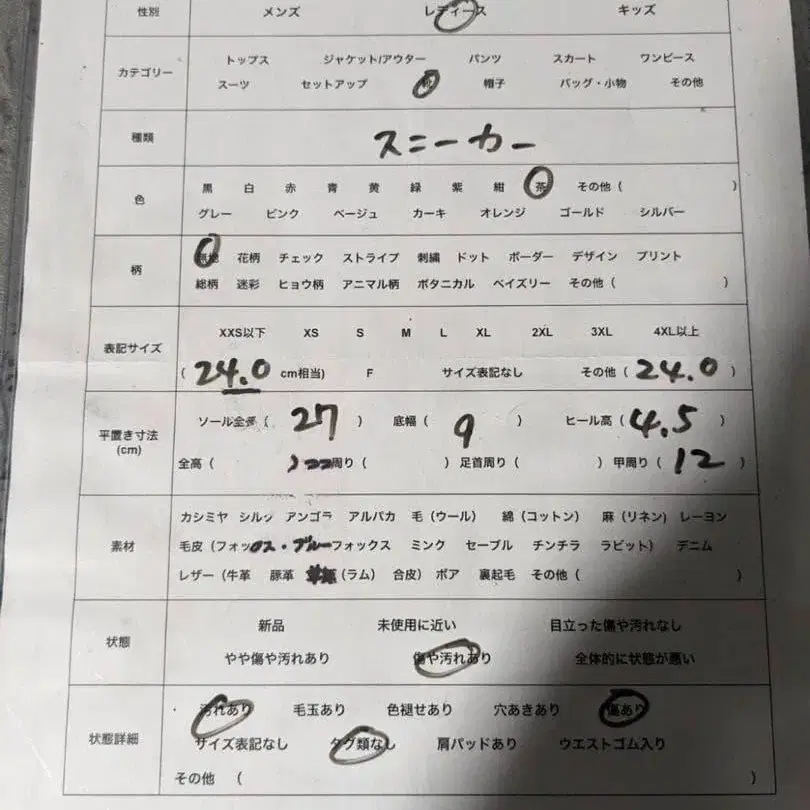 性別 メンズ レディース キッズ
カテゴリー
トップス ジャケット/アウター パンツ スカート ワンピース
スーツ セットアップ 靴 帽子 バッグ・小物 その他
種類 スニーカー
色
黒 白 赤 青 黄 緑 紫 紺 茶 その他（ ）
グレー ピンク ベージュ カーキ オレンジ ゴールド シルバー
柄
無地 花柄 チェック ストライプ 刺繍 ドット ボーダー デザイン プリント
総柄 迷彩 ヒョウ柄 アニマル柄 ボタニカル ペイズリー その他（ ）
表記サイズ
XXS以下 XS S M L XL 2XL 3XL 4XL以上
（ 24.0 cm相当) F サイズ表記なし その他（ 24.0 ）
平置き寸法
(cm)
ソール全長（ 27 ） 底幅（ 9 ） ヒール高（ 4.5 ）
全高（ ）ココ周り（ ）足首周り（ ）甲周り（ 12 ）
素材
カシミヤ シルク アンゴラ アルパカ 毛（ウール） 綿（コットン） 麻（リネン） レーヨン
毛皮（フォックス・ブルーフォックス ミンク セーブル チンチラ ラビット） デニム
レザー（牛革 豚革 （ラム） 合皮）ボア 裏起毛 その他（ ）
状態
新品 未使用に近い 目立った傷や汚れなし
やや傷や汚れあり 傷や汚れあり 全体的に状態が悪い
状態詳細
汚れあり 毛玉あり 色褪せあり 穴あきあり 傷あり
サイズ表記なし タグ類なし 肩パッドあり ウエストゴム入り
その他 （